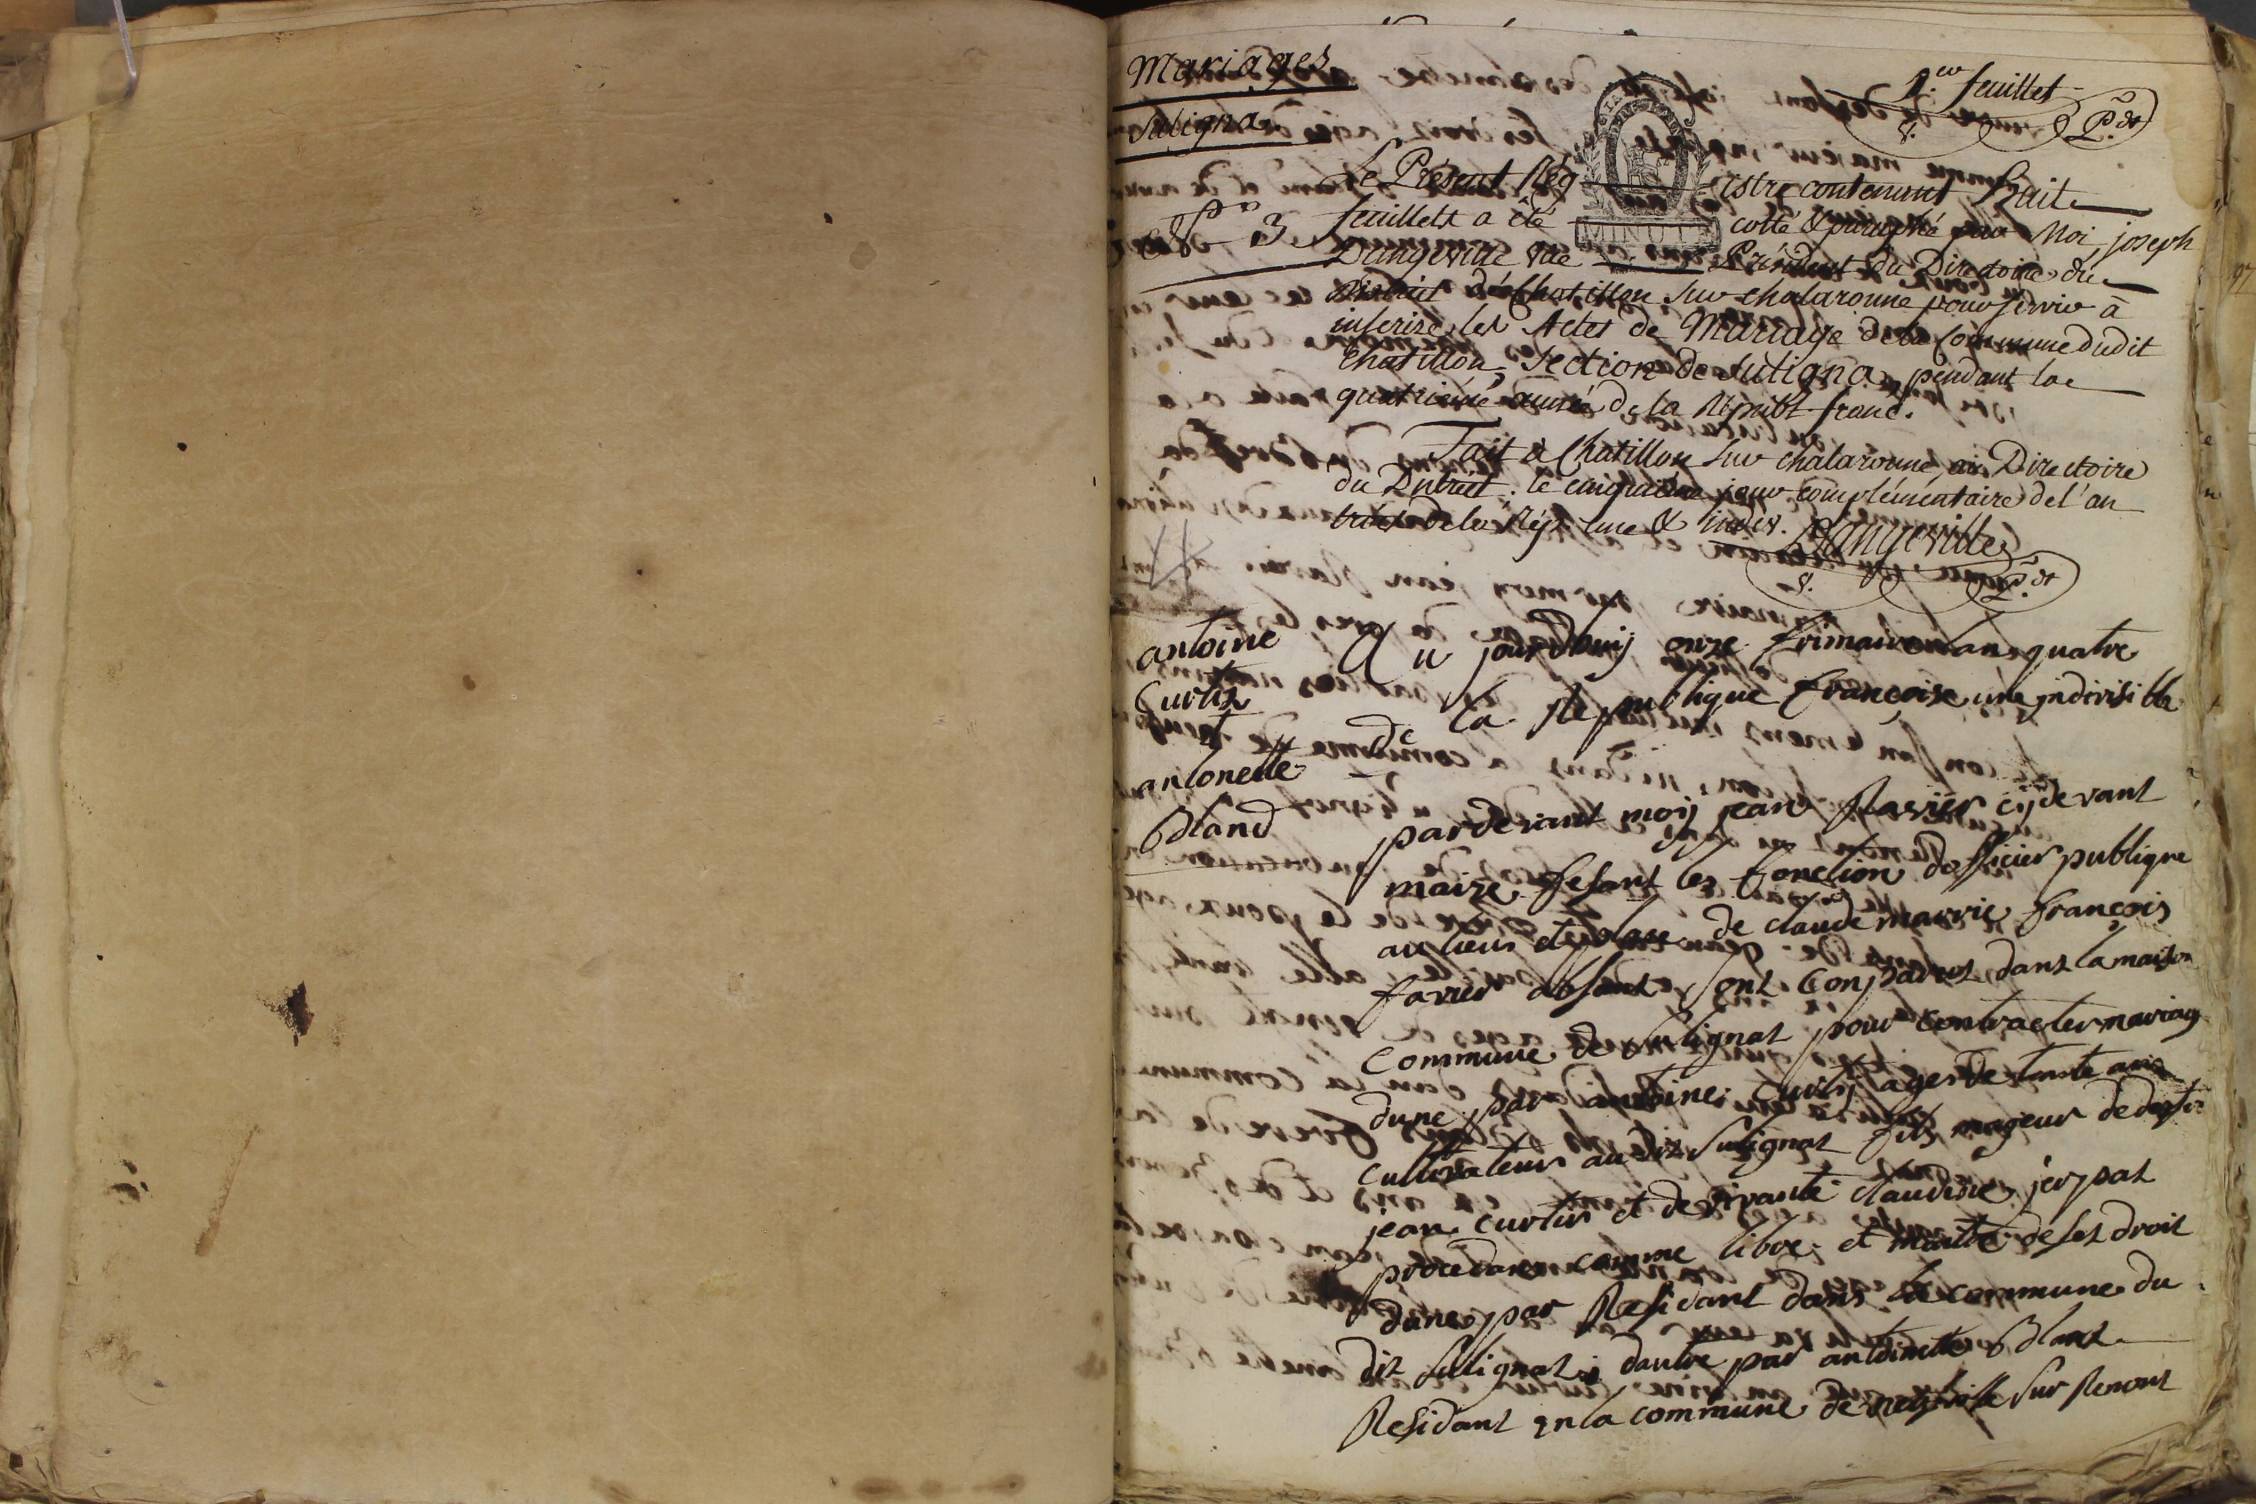 Mariages
1.er feuillet
Suligna
P.dt
Le Présent Rég istre contenant huit
feuillets a été cotté & paraphé par Moi, joseph
3
MINUTE
Dangeville Président du Directoire du
District de Chatillon sur chalaronne pour servir à
inscrire les Actes de Mariage de la Commune dudit
Chatillon, Section de Suligna, pendant la
quatrieme année de la Républ. franc.
Fait à Chatillon sur chalaronne, au Directoire
du District. le cinquieme jour complémentaire de l'an
trois de la Rép. une & indiv. Dangeville
P.dt
antoine
Curtis
et
antonette
Bland
Au jourdhuij onze frimaire lan quatre
de la Republique françoise une jndivisible
pardevant moij jean Ravier cijdevant
maire fesant les fonction dofficier publique
au lieus et place de claude marrie françois
favier absent sont Conparus dans la maison
Commune de Sulignat pour contracter mariag
dune par antoine Curtij ages de trente ans
Cultivateur au dit Sulignat fils mageur de
jean Curtis et de vivante claudine jerpat
procedant comme libre et maitre de ses droit
dune par Residant dans la commune du
dit Sulignat dautre par antoinette Bland
Residant en la commune de neuville sur Renont